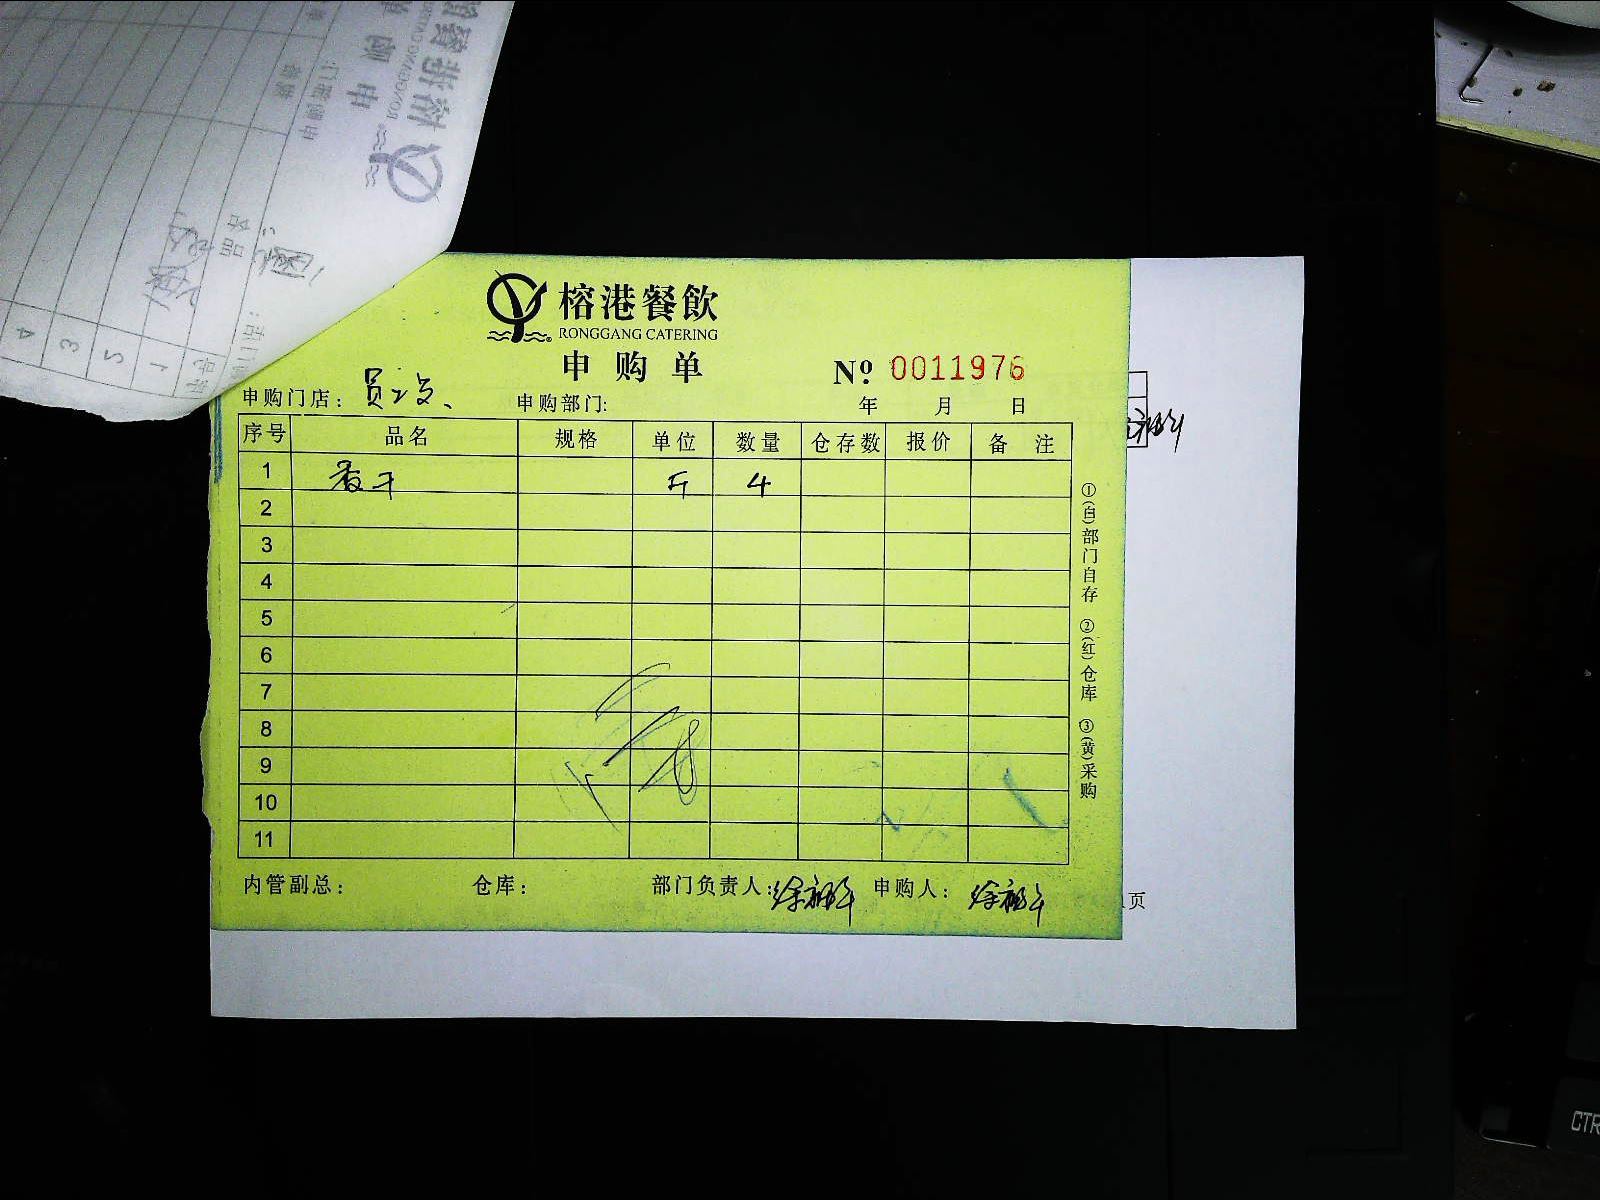 榕港餐飲
RONGGANG CATERING
申购单
№ 0011976
申购门店： 员工 申购部门: 年 月 日
序号 品名 规格 单位 数量 仓存数 报价 备注
1 香干 斤 4
2
3
4
5
6
7
8
9
10
11
内管副总： 仓库： 部门负责人： 申购人：
①(白)部门自存 ②(红)仓库 ③(黄)采购
页
CTR